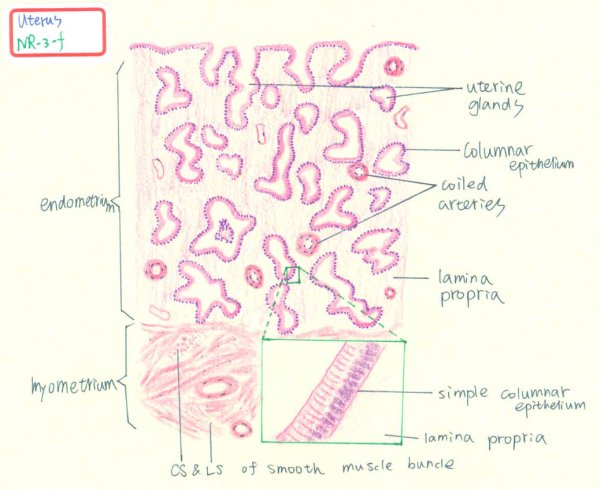 Uterus
NR-3-f
uterine
glands
columnar
epithelium
coiled
arteries
endometrium
lamina
propria
myometrium
simple columnar
epithelium
lamina propria
CS & LS of smooth muscle buncle